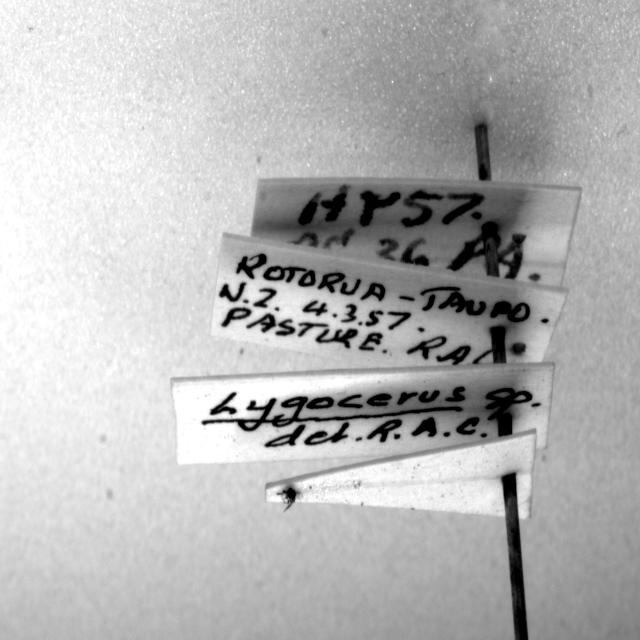 HY57.
ROTORUA-TAUPO.
N.Z 4.3.57.
PASTURE. R.A.
Lygocerus sp.
det. R.A.C.